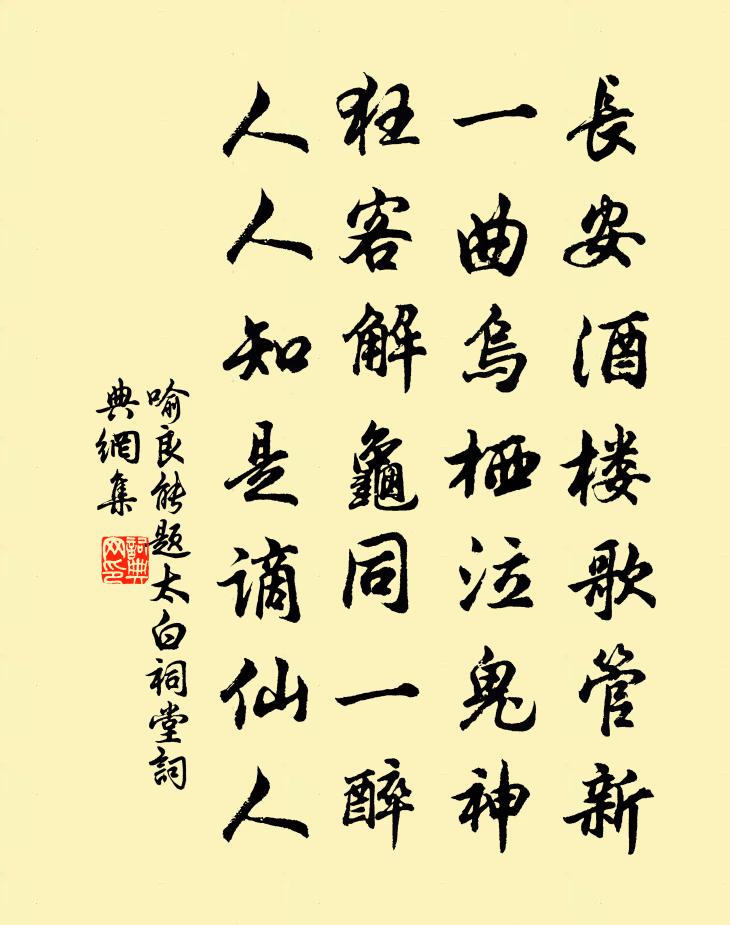 長安酒楼歌管新
一曲烏栖泣鬼神
狂客解龜同一醉
人人知是謫仙人
喻良能题太白祠堂詞
典網集
詞典
网印